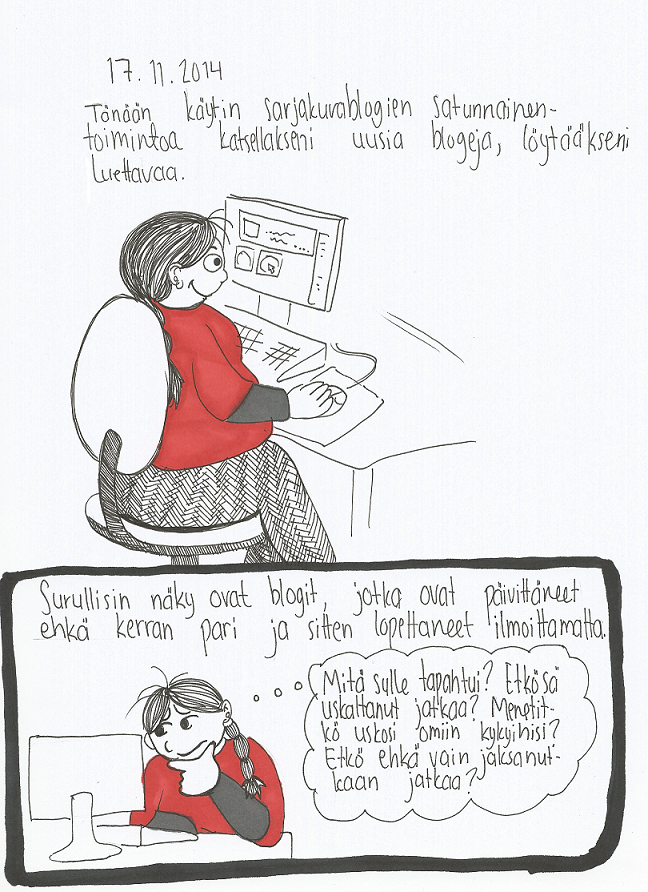 17.11.2014
Tänään käytin sarjakuvablogien satunnainen-
toimintoa katsellakseni uusia blogeja, löytääkseni
luettavaa.
Surullisin näky ovat blogit, jotka ovat päivittäneet
ehkä kerran pari ja sitten lopettaneet ilmoittamatta.
Mitä sulle tapahtui? Etkö sä
uskaltanut jatkaa? Menetit-
kö uskosi omiin kykyihisi?
Etkö ehkä vain jaksanut-
kaan jatkaa?